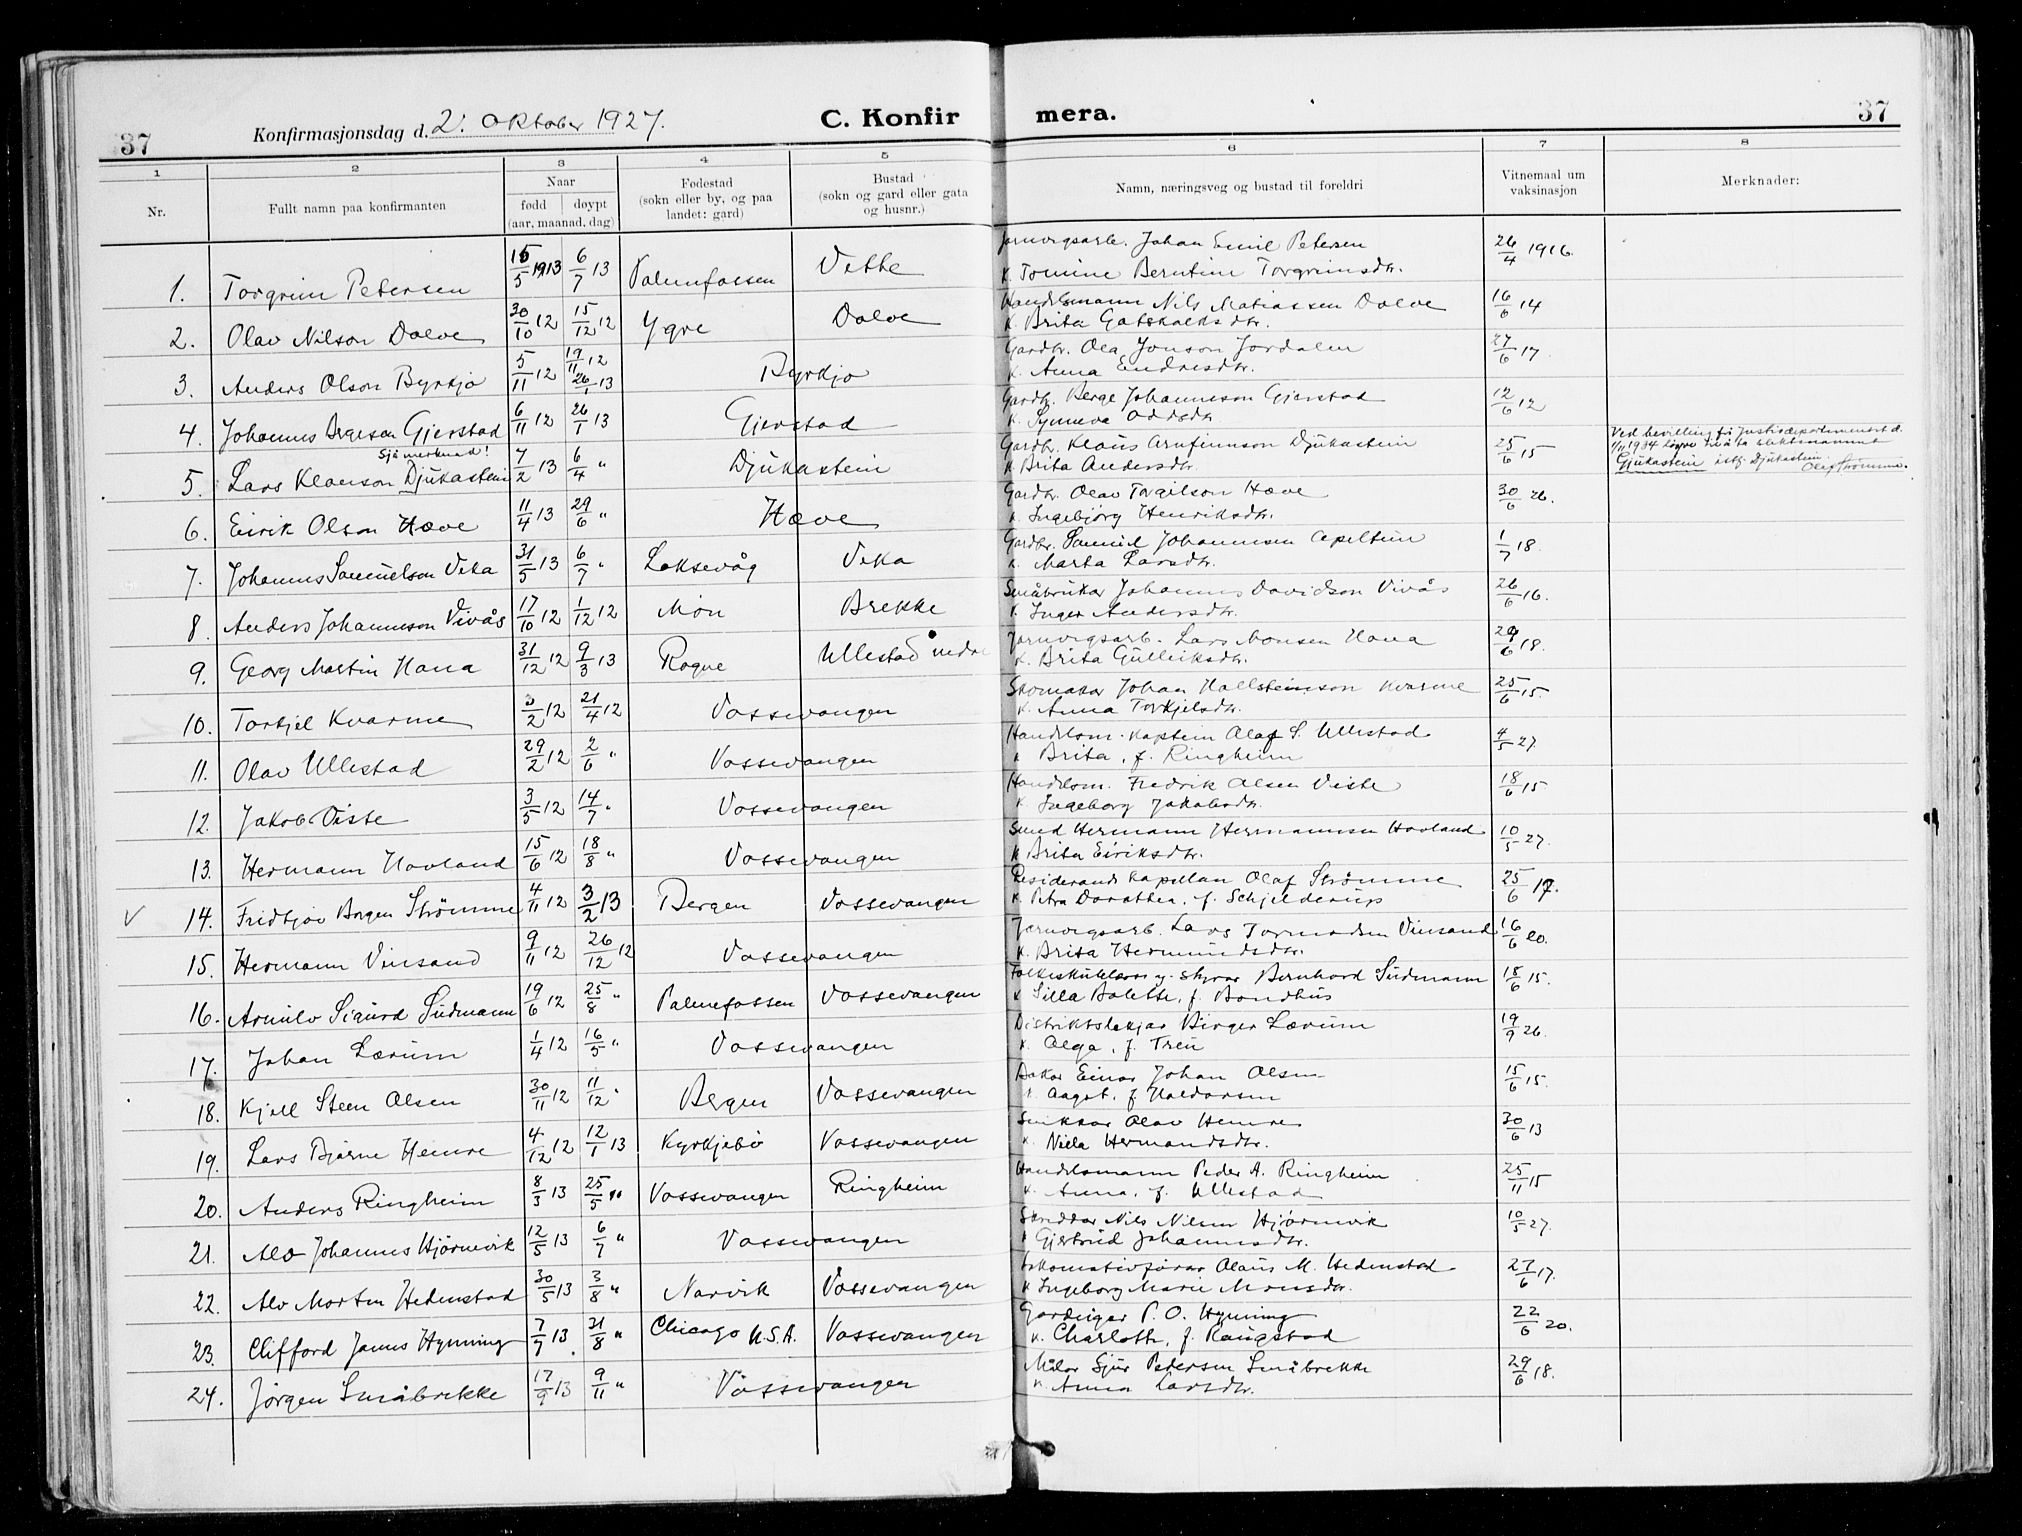 37 Konfirmasjonsdag d. 2. Oktober 1927. C. Konfir mera. 37
1 2 3 4 5 6 7 8
Nr. Fullt namn paa konfirmanten Naar fødd døypt (aar, maanad, dag) Fødestad (sokn eller by, og paa landet: gard) Bustad (sokn og gard eller gata og husnr.) Namn, næringsveg og bustad til foreldri Vitnemaal um vaksinasjon Merknader:
Jarnvegsarb. Johan Emil Petersen
1. Torgrim Petersen 15/5 1913 6/7 13 Palmafossen Vethe k. Tomine Berntine Torgrimsdtr. 26/4 1916.
Handelsmann Nils Matiassen Dolve
2. Olav Nilson Dolve 30/10 12 15/12 12 Ygre Dolve k. Brita Gotskalksdtr. 16/6 14
Gardbr. Ola Jonson Jordalen
3. Anders Olson Byrkjo 5/11 12 19/11 12 26/1 13 Byrkjo k. Anna Endresdtr. 27/6 17.
Gardbr. Berge Johannesson Gjerstad
4. Johannes Bergeson Gjerstad 6/11 12 26/1 13 Gjerstad k. Synneva Oddsdtr 12/6 12
Sjå merknad!
Gardbr. Klaus Arnfinnson Djukastein
5. Lars Klauson Djukastein 7/2 13 6/4 " Djukastein k. Brita Andersdtr. 25/6 15
Ved bevilling frå Justisdepartementet d.
1/11 1934
Gjukastein istf. Djukastein. Olaf Strömme.
Gardbr. Olav Torgilson Hæve
6. Eirik Olson Hæve 11/4 13 29/6 " Hæve k. Ingebjörg Henriksdtr. 30/6 26.
Gardbr. Samuel Johannesen Apeltun
7. Johannes Samuelson Veka 31/5 13 6/7 " Laksevåg Veka k. Marta Larsdtr. 1/7 18.
Småbrukar Johannes Davidson Vivås
8. Anders Johannesson Vivås 17/10 12 1/12 12 Mön Brekke k. Inger Andersdtr. 26/6 16.
Jarnvegsarb. Lars Monsen Hana
9. Georg Martin Hana 31/12 12 9/3 13 Rogne Ullestad nedre k. Brita Gulleiksdtr. 29/6 18.
Skomakar Johan Hallsteinson Kvarme
10. Torkjel Kvarme 3/2 12 21/4 12 Vossevangen k. Anna Torkjelsdtr. 25/6 15.
Handelsm. Kaptein Olaf S. Ullestad
11. Olav Ullestad 29/2 12 2/6 " Vossevangen k Brita, f. Ringheim 4/5 27.
Handelsm. Fredrik Olsen Viste
12. Jakob Viste 3/5 12 14/7 " Vossevangen k. Ingeborg Jakobsdtr. 18/6 15
Smed Hermann Hermannsen Hovland
13. Hermann Hovland 15/6 12 18/8 " Vossevangen k Brita Eiriksdtr. 10/5 27.
Residerande kapellan Olaf Strömme
V 14. Fridtjov Borgen Strömme 4/11 12 3/2 13 Bergen Vossevangen k. Petra Dorothea, f. Schjelderup 25/6 17.
Jarnvegsarb. Lars Tormodsen Vinsand
15. Hermann Vinsand 9/11 12 26/12 12 Vossevangen k. Brita Hermundsdtr. 16/6 20.
Folkeskulelærar og styrar Bernhard Sudmann
16. Arnulv Sigurd Sudmann 19/6 12 25/8 " Palmefossen Vossevangen k Silla Bolette, f. Bondhus 18/6 15.
Distriktslækjar Birger Lærum
17. Johan Lærum 1/4 12 16/5 " Vossevangen k. Olga, f. Treu 19/9 26.
Bakar Einar Johan Olsen
18. Kjell Steen Olsen 30/11 12 11/12 " Bergen Vossevangen k. Aagot, f. Haldorsen 15/6 15.
Snikkar Olav Hemre
19. Lars Bjarne Hemre 4/12 12 12/1 13 Kyrkjebö Vossevangen k. Nilla Hermandsdtr. 30/6 13
Handelsmann Peder A. Ringheim
20. Anders Ringheim 8/3 13 25/5 " Vossevangen Ringheim k. Anna, f. Ullestad 25/11 15
Skreddar Nils Nilsen Hjörnevik
21. Alv Johannes Hjörnevik 12/5 13 6/7 " Vossevangen k Gjertrud Johannesdtr. 10/5 27.
Lokomotivförar Olaus M. Hedenstad
22. Alv Morten Hedenstad 30/5 13 3/8 " Narvik Vossevangen k Ingeborg Marie Monsdtr. 27/6 17.
Gardeigar P. O. Hynning
23. Clifford James Hynning 7/7 13. 31/8 " Chicago U.S.A. Vossevangen k. Charlotte, f. Raugstad 22/6 20.
Målar Sjur Pedersen Småbrekke
24. Jörgen Småbrekke 17/9 13 9/11 " Vossevangen k. Anna Larsdtr. 29/6 18.